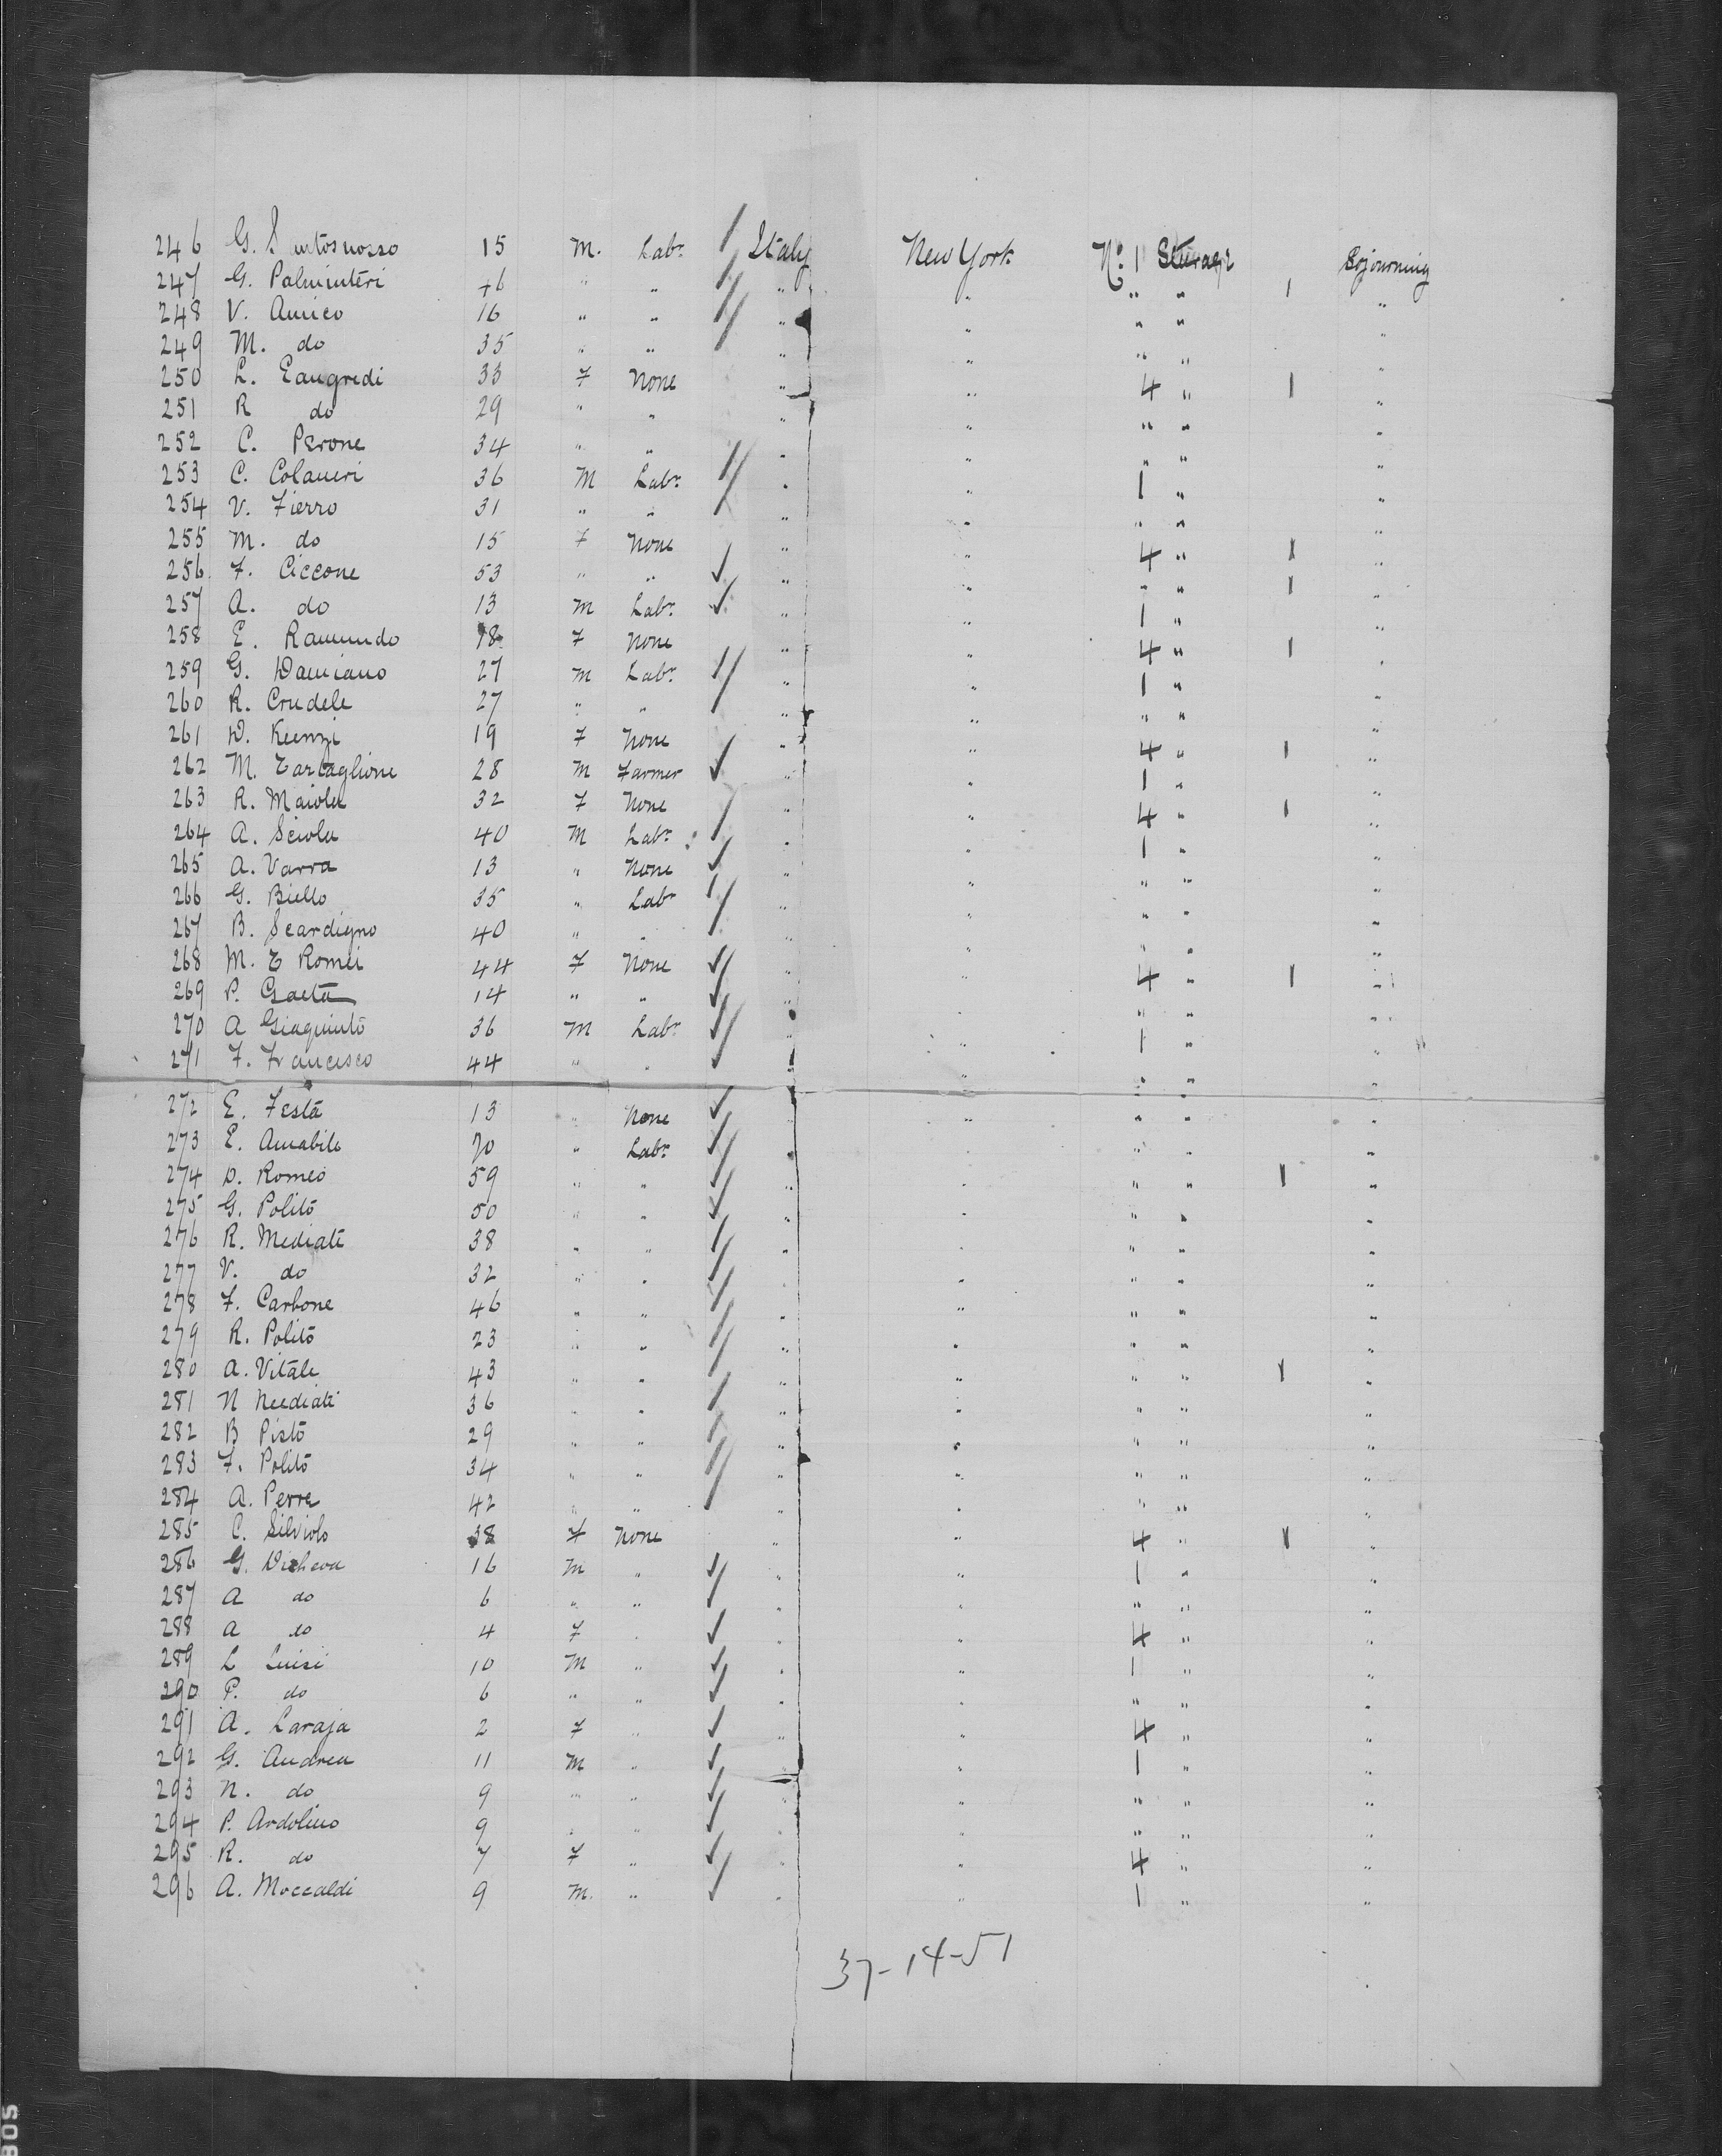 246 G. 15 M. Labr. Italy New York No. 1 Steerage Sojourning
247 G. Palminteri 46 " " " " " " 1 "
248 V. Amico 16 " " " " " " "
249 M. do 35 " " " " " " "
250 L. Eangredi 33 F None " " 4 " 1 "
251 R do 29 " " " " " " "
252 C. Perone 34 " " " " " " "
253 C. Colaneri 36 M Labr. " " 1 " "
254 V. Fierro 31 " " " " " " "
255 M. do 15 F None " " 4 " 1 "
256 F. Ciccone 53 " " " " " " 1 "
257 A. do 13 M Labr. " " 1 " "
258 E. Ramundo 18 F None " " 4 " 1 "
259 G. Damiano 27 M Labr. " " 1 " "
260 R. Crudele 27 " " " " " " "
261 D. Kienzi 19 F None " " 4 " 1 "
262 M. Tartaglione 28 M Farmer " " 1 " "
263 R. Maiola 32 F None " " 4 " 1 "
264 A. Sciola 40 M Labr. " " 1 " "
265 A. Varra 13 " None " " " " "
266 G. Biello 35 " Labr " " " " "
267 B. Scardigno 40 " " " " " " "
268 M. T Romei 44 F None " " 4 " 1 "
269 P. Gaeta 14 " " " " " " "
270 A Giaquinto 36 M Labr. " " 1 " "
271 F. Francisco 44 " " " " " " "
272 E. Festa 13 " None " " " " "
273 E. Amabile 70 " Labr. " " " " "
274 D. Romeo 59 " " " " " " 1 "
275 G. Polito 50 " " " " " " "
276 R. Mediati 38 " " " " " " "
277 V. do 32 " " " " " " "
278 F. Carbone 46 " " " " " " "
279 R. Polito 23 " " " " " " "
280 A. Vitale 43 " " " " " " 1 "
281 N Mediati 36 " " " " " " "
282 B Pisto 29 " " " " " " "
283 F. Polito 34 " " " " " " "
284 A. Perre 42 " " " " " " "
285 C. Silviolo 38 F None " " 4 " 1 "
286 G. 16 M " " " 1 " "
287 A do 6 " " " " " " "
288 A do 4 F " " " 4 " "
289 L Luisi 10 M " " " 1 " "
290 P. do 6 " " " " " " "
291 A. Laraja 2 F " " " 4 " "
292 G. Andrea 11 M " " " 1 " "
293 N. do 9 " " " " " " "
294 P. Ardolino 9 " " " " " " "
295 R. do 7 F " " " 4 " "
296 A. Moccaldi 9 M. " " " 1 " "
37-14-51